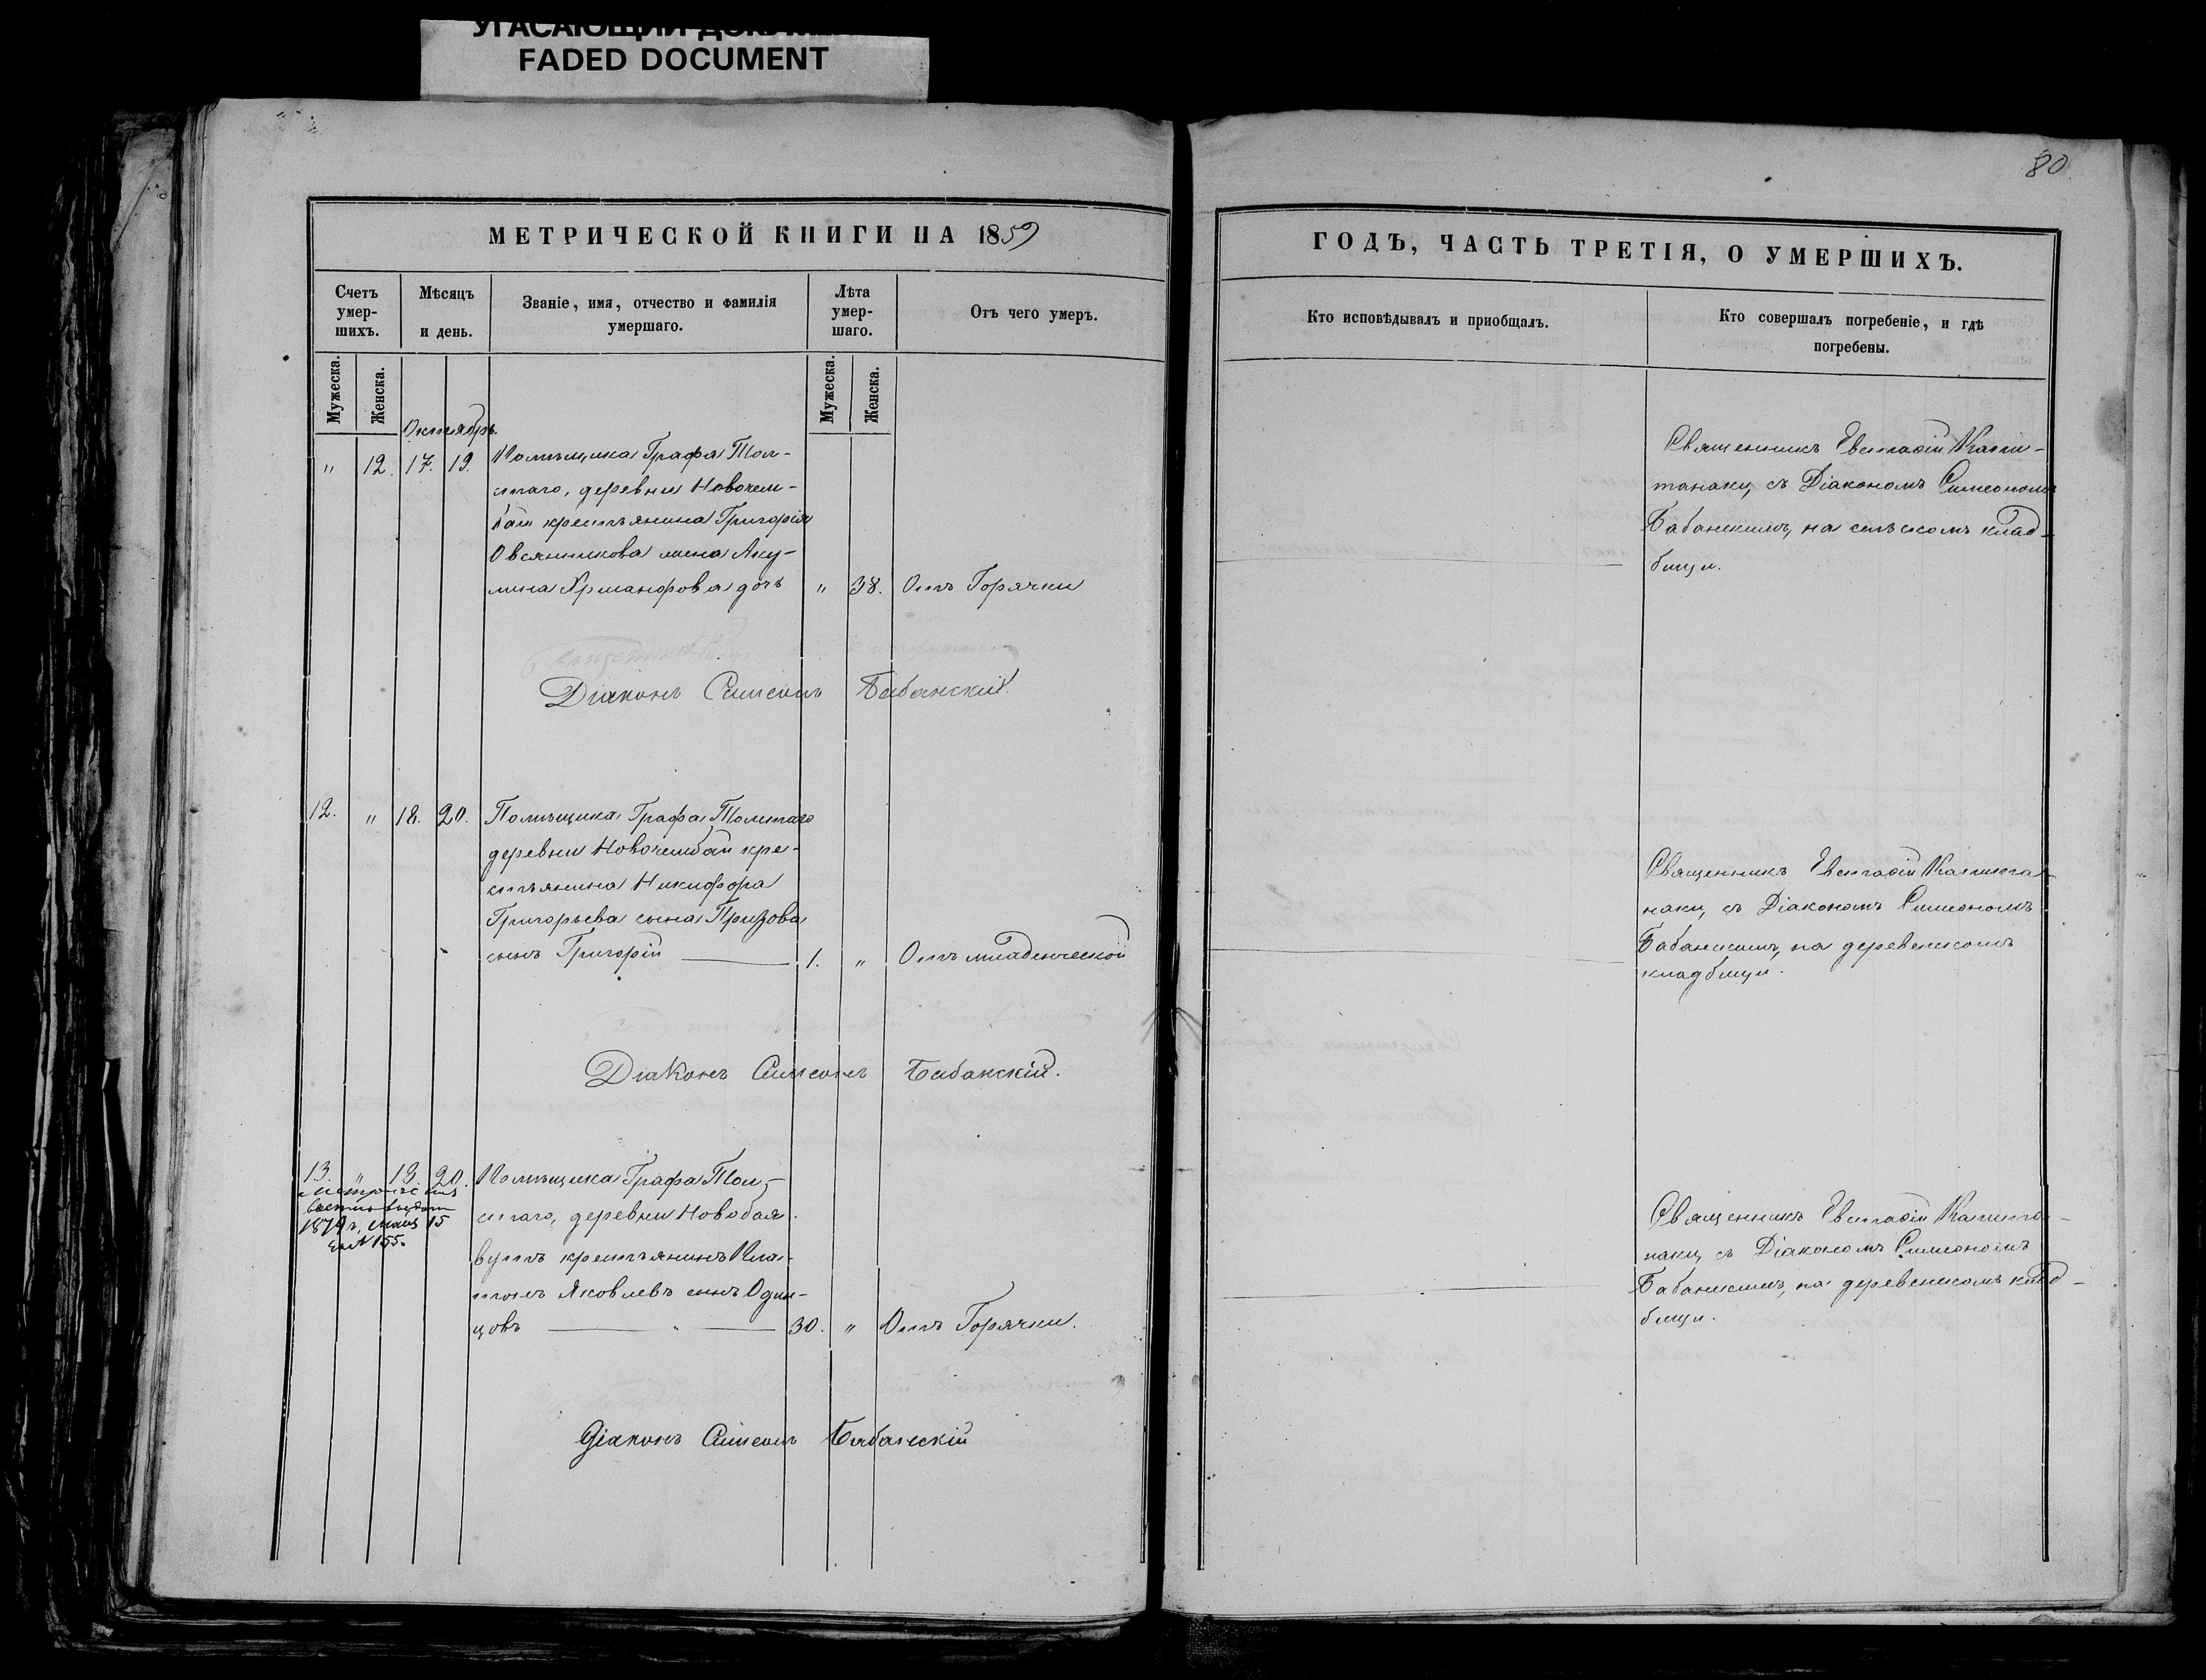 УГАСАЮЩИЙ ДОКУМ
FADED DOCUMENT
80
МЕТРИЧЕСКОЙ КНИГИ НА 1859
ГОДЪ, ЧАСТЬ ТРЕТІЯ, О УМЕРШИХЪ.
Счетъ умер-шихъ.
Мѣсяцъ и день.
Званіе, имя, отчество и фамилія умершаго.
Лѣта умер-шаго.
Отъ чего умеръ.
Кто исповѣдывалъ и приобщалъ.
Кто совершалъ погребеніе, и гдѣ погребены.
Мужеска.
Женска.
Мужеска.
Женска.
Октябрь.
" 12. 17. 19. Помѣщика Графа Тол-
стаго, деревни Новочем-
бай крестьянина Григорія
Овсянникова жена Аку-
лина дочь " 38. Отъ Горячки
Священникъ Евстафій Капи-
танаки, съ Діакономъ Симеономъ
Бабанскимъ, на сельскомъ клад-
бищи.
Діаконъ Симеонъ Бабанскій.
12. " 18. 20. Помѣщика Графа Толстаго
деревни Новочембай кре-
стьянина Никифора
Григорьева сына
сынъ Григорій 1. " Отъ младенческой
Священникъ Евстафій Капита-
наки, съ Діакономъ Симеономъ
Бабанскимъ, на деревенскомъ
кладбищи.
Діаконъ Симеонъ Бабанскій.
13. " 19. 20. Помѣщика Графа Тол-
стаго, деревни Новобая
вутъ крестьянинъ Пла-
тонъ Яковлевъ сынъ Один-
цовъ 30. " Отъ Горячки.
1874 г. 15
155.
Священникъ Евстафій Капита-
наки, съ Діакономъ Симеономъ
Бабанскимъ, на деревенскомъ клад-
бищи.
Діаконъ Симеонъ Бабанскій